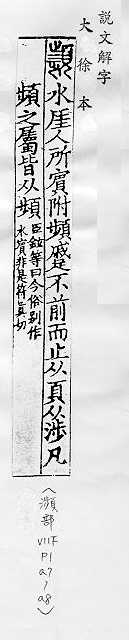 說文解字
大徐本
頻 水厓人所賓附頻蹙不前而止从頁从涉凡
頻之屬皆从頻
臣鉉等曰今俗別作
水賓非是符真切
〈瀕部 V11下 P1 a7, a8〉